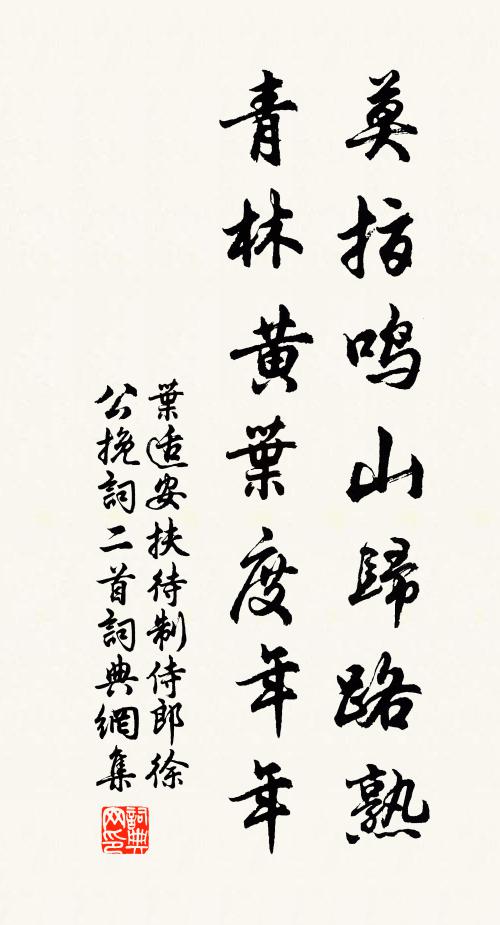 莫指鳴山歸路熟
青林黃葉度年年
葉適安扶待制侍郎徐
公挽詞二首詞典網集
詞典網印